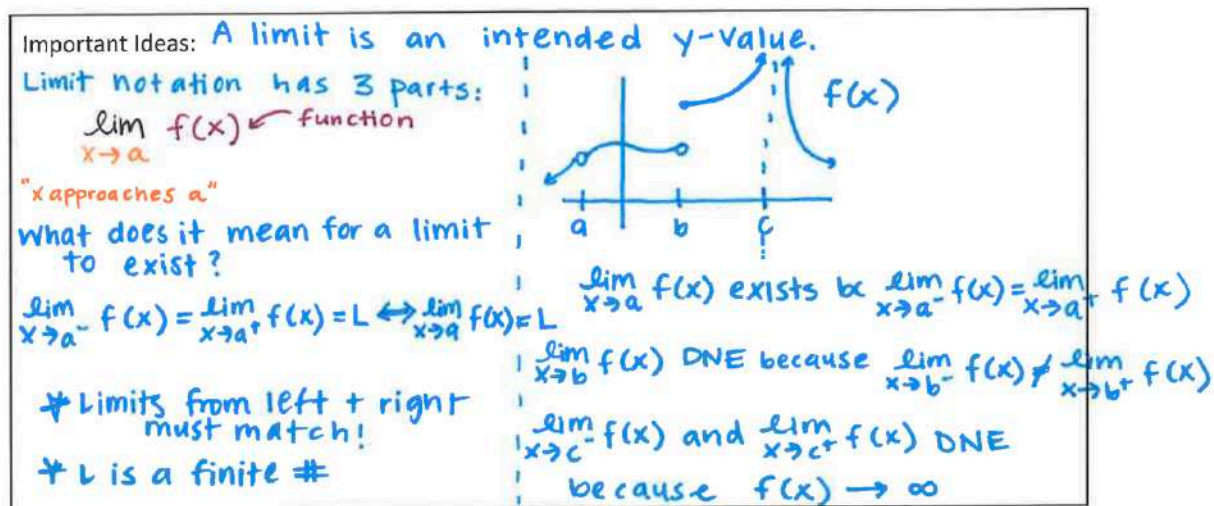 Important Ideas: A limit is an intended y-value.
Limit notation has 3 parts:
lim f(x) ← function
x→a
"x approaches a"
What does it mean for a limit
to exist?
lim f(x) = lim f(x) = L ⟷ lim f(x) = L
x→a⁻ x→a⁺ x→a
* Limits from left + right
must match!
* L is a finite #
f(x)
a b c
lim f(x) exists bc lim f(x) = lim f(x)
x→a x→a⁻ x→a⁺
lim f(x) DNE because lim f(x) ≠ lim f(x)
x→b x→b⁻ x→b⁺
lim f(x) and lim f(x) DNE
x→c⁻ x→c⁺
because f(x) → ∞